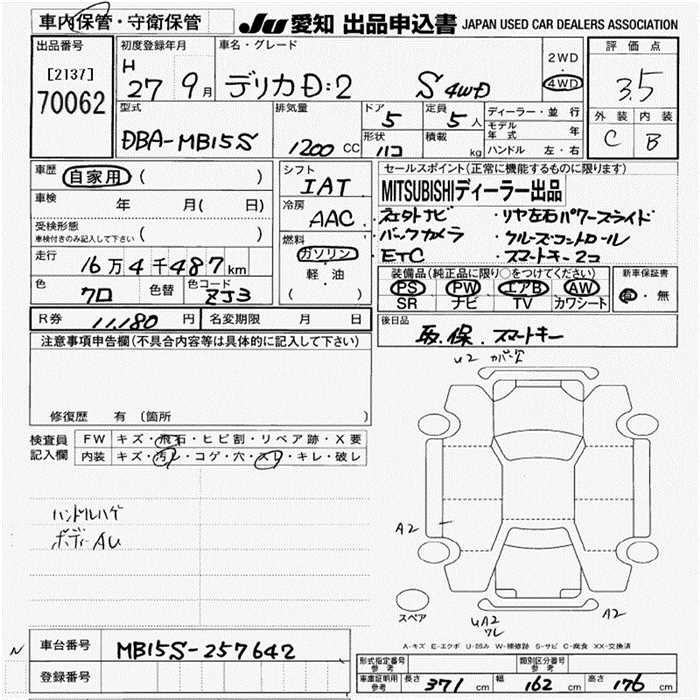 車内保管・守衛保管
JU 愛知 出品申込書 JAPAN USED CAR DEALERS ASSOCIATION
出品番号
[2137]
70062
初度登録年月
H 27 9月
車名・グレード
デリカD:2 S 4WD
2WD
・
4WD
評価点
3.5
外装 内装
C B
型式
DBA-MB15S
排気量
1200 CC
ドア
5
形状
ハコ
定員
5人
積載
kg
ディーラー・並行
モデル年式 年
ハンドル 左・右
車歴
自家用 ( )
車検
年 月( 日)
受検形態
車検付きのみ記入して下さい ( )
走行
16万4千487km
色
クロ
色替
色コード
ZJ3
シフト
IAT
冷房
AAC
燃料
ガソリン
軽・油
( )
セールスポイント(正常に機能するものに限ります)
MITSUBISHIディーラー出品
・バックカメラ
・ETC
・リヤ左右パワースライド
・クルーズコントロール
・スマートキー2コ
装備品(純正品に限り○をつけてください)
PS PW エアB AW
SR ナビ TV カワシート
新車保証書
有・無
R券 11,180円
名変期限 月 日
後日品
取.保. スマートキー
注意事項申告欄(不具合内容等は具体的に記入して下さい)
修復歴 有 (箇所 )
検査員
記入欄
FW キズ・飛石・ヒビ割・リペア跡・X要
内装 キズ・汚レ・コゲ・穴・スレ・キレ・破レ
ハンドルハゲ
ボディーAU
U2
A2
UA2
A2
スペア
A-キズ E-エクボ U-凹み W-補修跡 S-サビ C-腐食 XX-交換済
N
車台番号
MB15S-257642
登録番号
形式指定番号
参考
類別区分番号
参考
車庫証明用
参考
長さ 371cm
幅 162cm
高さ 176cm